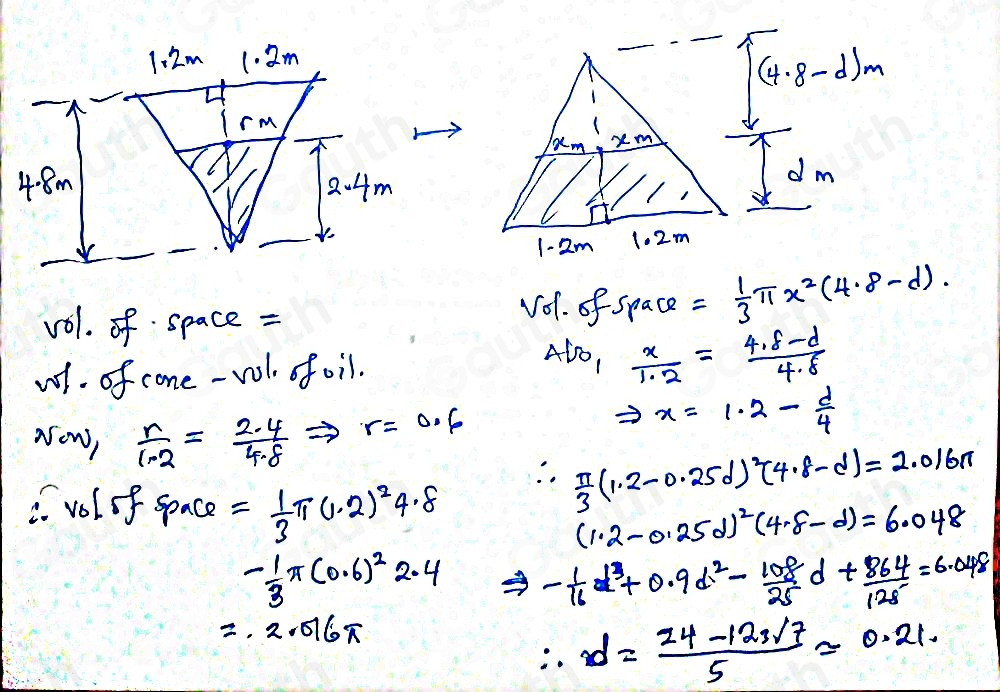 1.2m 1.2m
r m
4.8m
2.4m
(4.8-d)m
xm xm
d m
1.2m 1.2m
Vol. of space =
vol. of cone - vol. of oil.
Now, r/1.2 = 2.4/4.8 ⇒ r = 0.6
∴ vol of space = 1/3 π (1.2)² 4.8
- 1/3 π (0.6)² 2.4
= 2.016π
Vol. of space = 1/3 π x² (4.8-d).
Also, x/1.2 = 4.8-d/4.8
⇒ x = 1.2 - d/4
∴ π/3 (1.2-0.25d)² (4.8-d) = 2.016π
(1.2-0.25d)² (4.8-d) = 6.048
⇒ -1/16 d³ + 0.9d² - 108/25 d + 864/125 = 6.048
∴ d = 24-12³√7/5 ≈ 0.21.